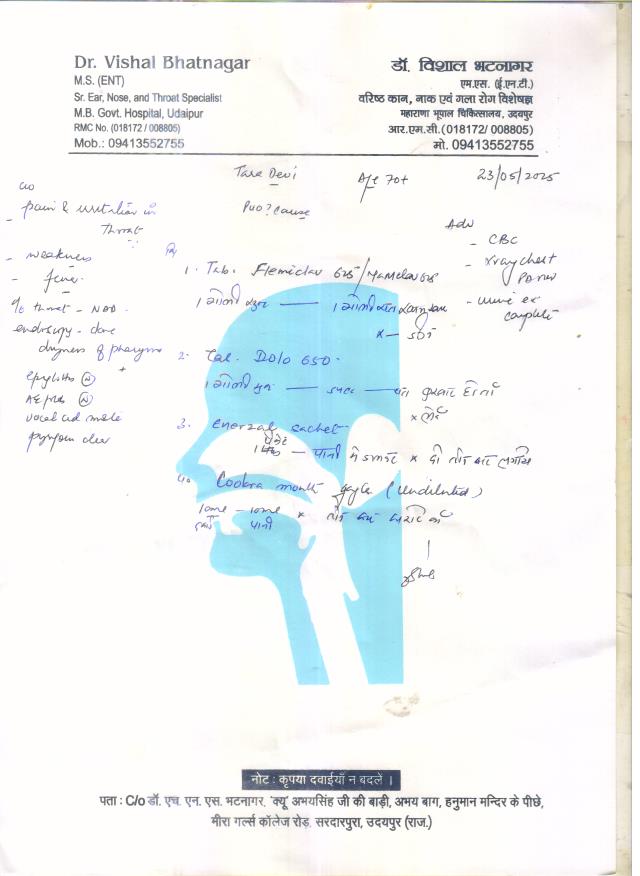 Dr. Vishal Bhatnagar
M.S. (ENT)
Sr. Ear, Nose, and Throat Specialist
M.B. Govt. Hospital, Udaipur
RMC No. (018172 / 008805)
Mob.: 09413552755
डॉ. विशाल भटनागर
एम.एस. (ई.एन.टी.)
वरिष्ठ कान, नाक एवं गला रोग विशेषज्ञ
महाराणा भूपाल चिकित्सालय, उदयपुर
आर.एम.सी.(018172/ 008805)
मो. 09413552755
Tara Devi
Age 70+
23/05/2025
c/o
- pain & irritation in
throat
- weakness
- fever
throat - NAD
endoscopy - done
dryness of pharynx
epiglottis (N)
AE folds (N)
vocal cord mobile
pyriform clear
PUO? cause
Adv
- CBC
- Xray chest
PA view
- urine ex
complete
1. Tab. Flemiclav 625/
1 गोली सुबह — 1 गोली
2. Tab. DOLO 650.
1 गोली
3. Enerzal sachet
पानी में
4. mouth gargle (undiluted)
10ml - 10ml
पानी
नोट : कृपया दवाईयाँ न बदलें ।
पता : C/o डॉ. एच. एन. एस. भटनागर, 'क्यू' अभयसिंह जी की बाड़ी, अभय बाग, हनुमान मन्दिर के पीछे,
मीरा गर्ल्स कॉलेज रोड़, सरदारपुरा, उदयपुर (राज.)